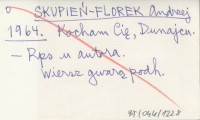 SKUPIEŃ-FLOREK Andrzej
1964. Kocham Cię, Dunajcu.
— Rps u autora.
Wiersz gwarą podh.